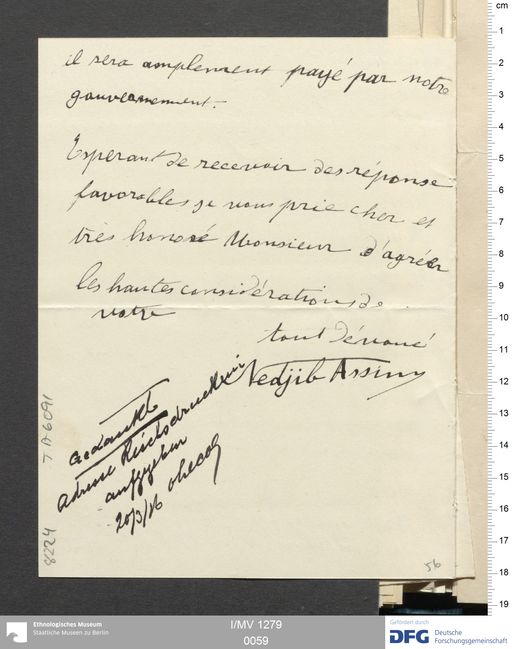 il sera amplement payé par notre
gouvernement.
Esperant de recevoir des réponse
favorables je vous prie cher et
très honoré Monsieur d'agréer
les hautes considérations de
votre
tout dévoué
Nedjib Assim
Gedankt
Adresse Reichsdruckerei
aufgegeben
20/3/16
TA 6091
8224
56
cm
1
2
3
4
5
6
7
8
9
10
11
12
13
14
15
16
17
18
19
Ethnologisches Museum
Staatliche Museen zu Berlin
I/MV 1279
0059
Gefördert durch
DFG Deutsche
Forschungsgemeinschaft